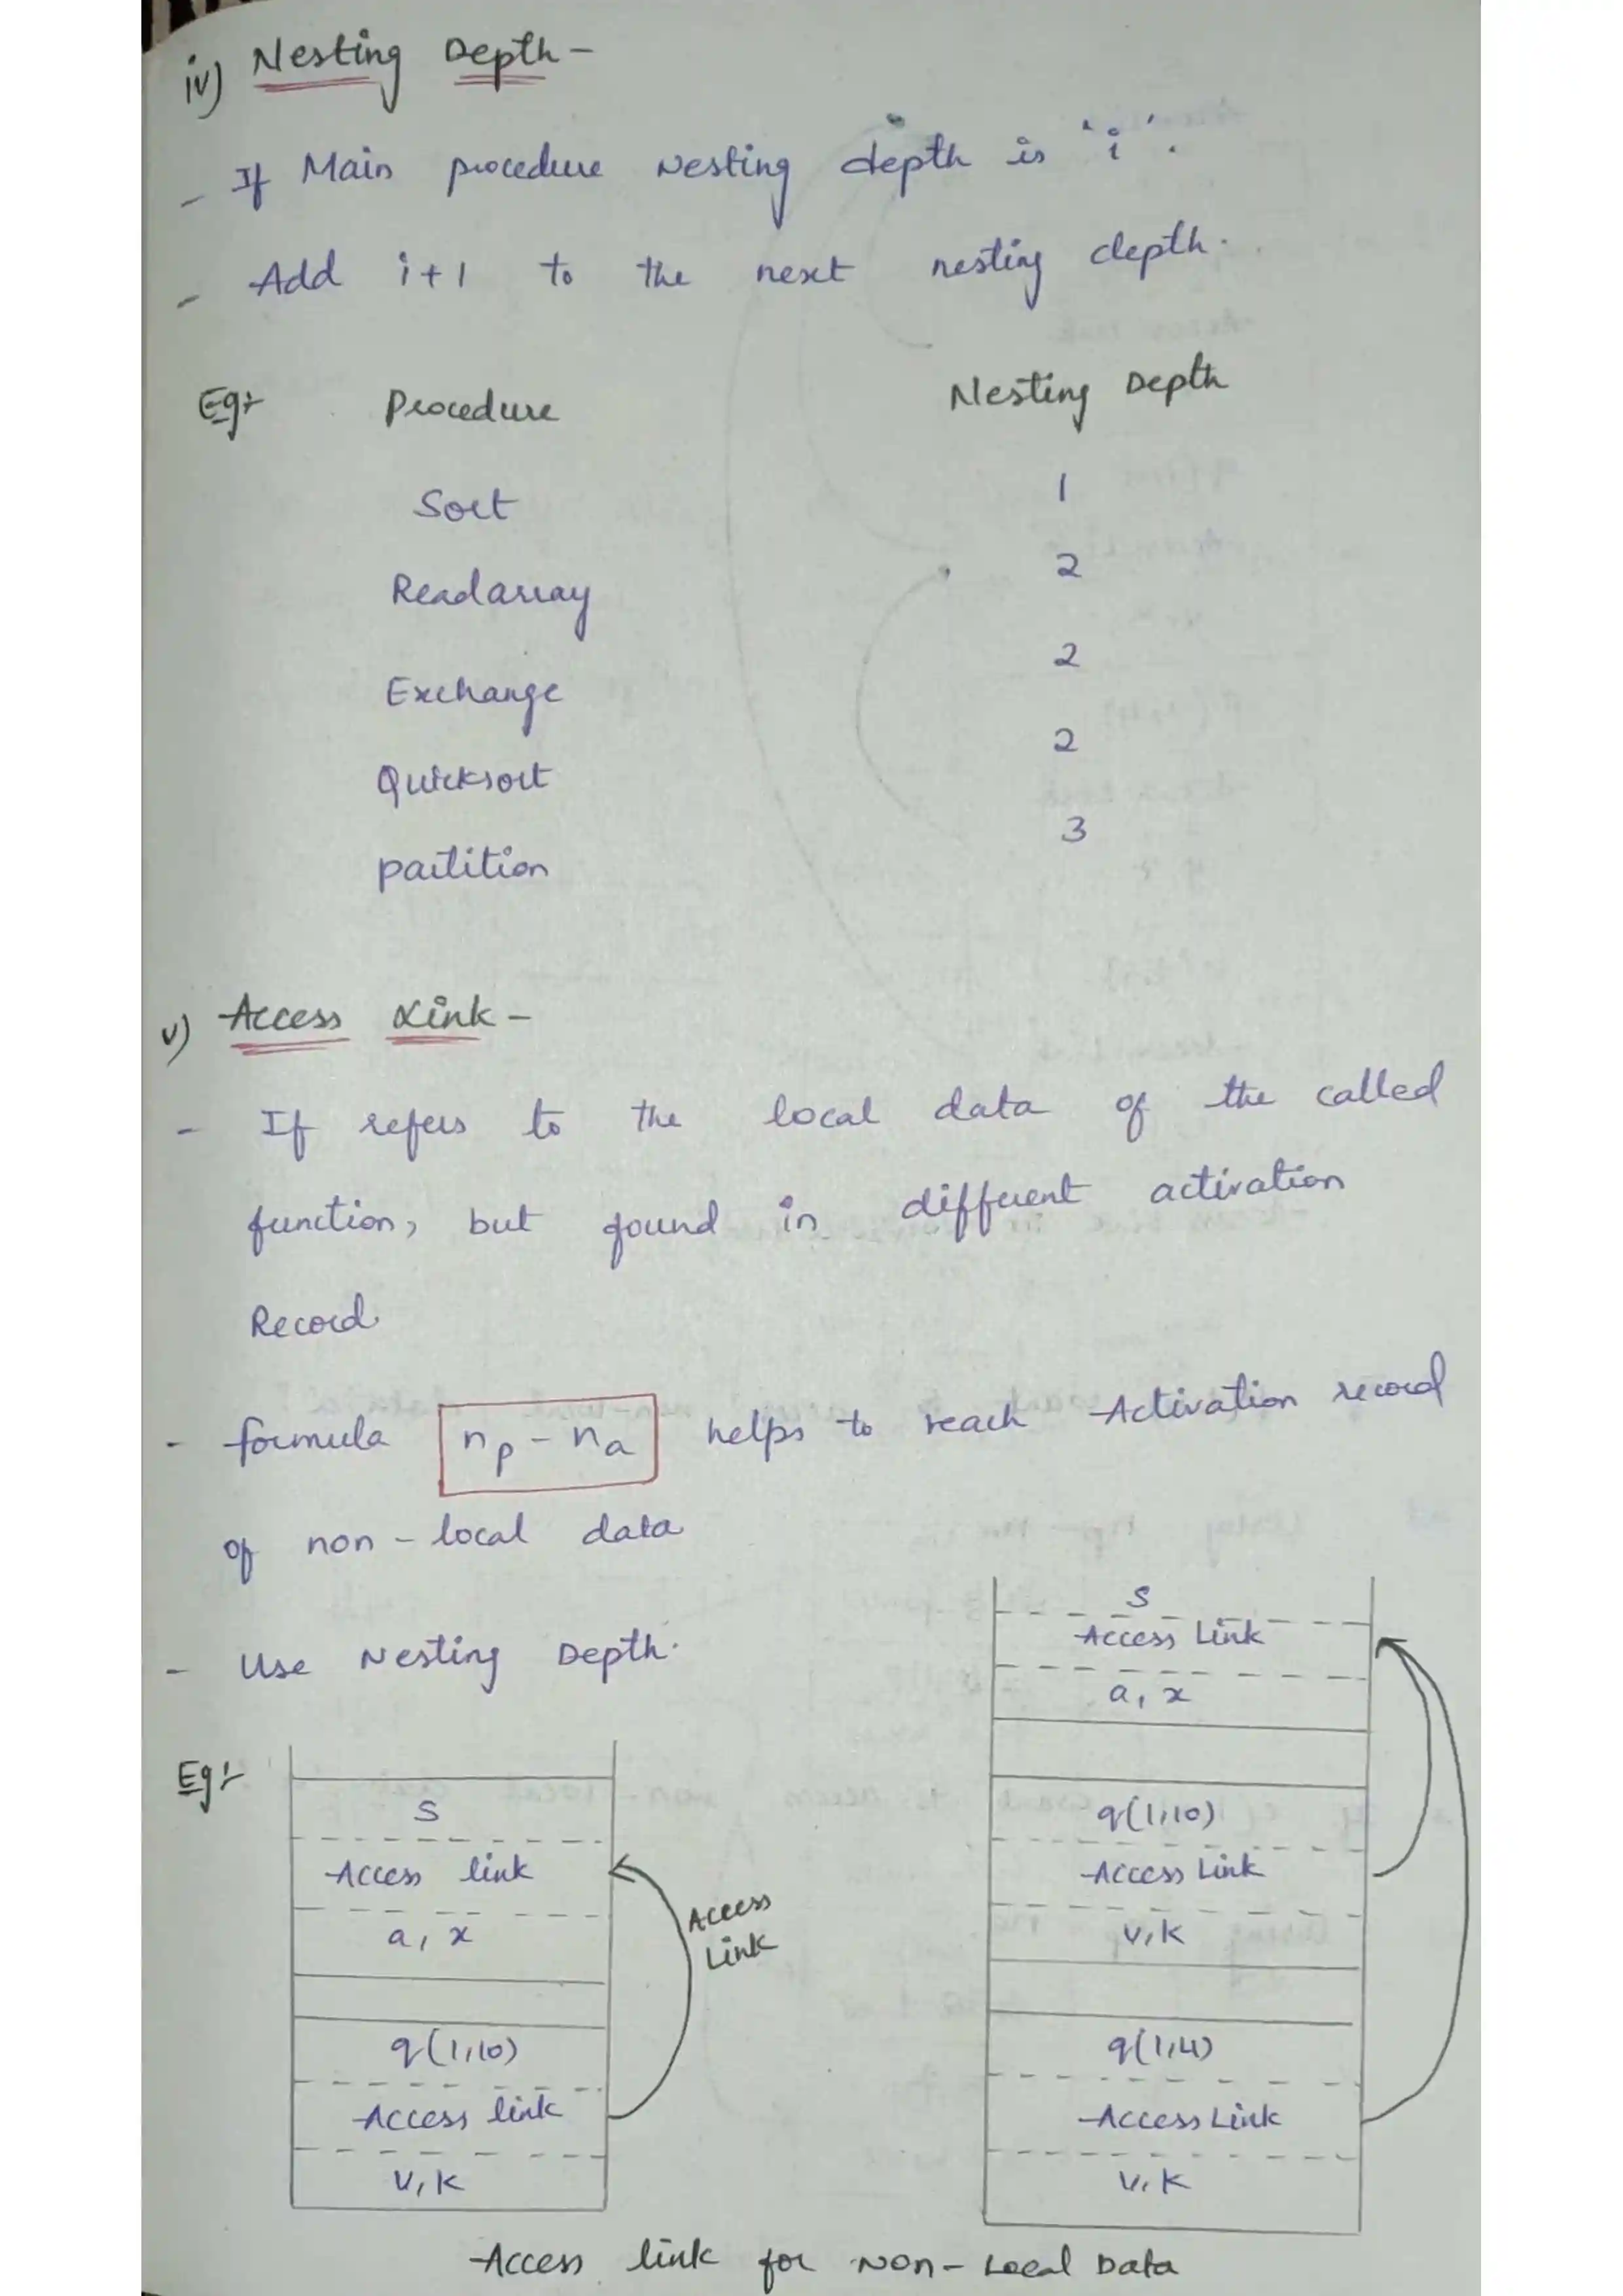 iv) Nesting Depth -
- If Main procedure Nesting depth is 'i'.
- Add i+1 to the next nesting depth.
Eg:- Procedure Nesting Depth
Sort 1
Readarray 2
Exchange 2
Quicksort 2
partition 3
v) Access Link -
- If refers to the local data of the called
function, but found in different activation
Record.
- formula np - na helps to reach Activation record
of non-local data
- Use Nesting Depth.
Eg:-
S
Access link
a, x
q(1,10)
Access link
v, k
Access
Link
S
Access Link
a, x
q(1,10)
Access Link
v, k
q(1,4)
Access Link
v, k
Access link for Non-Local Data